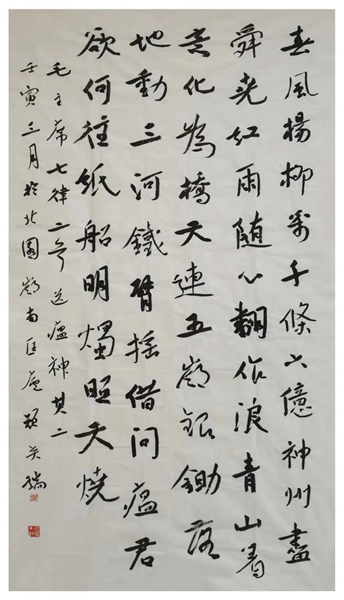 春風揚柳萬千條六億神州盡
舜堯紅雨随心翻作浪青山着
意化為橋天連五嶺銀鋤落
地動三河鐵臂摇借問瘟君
欲何往紙船明燭照天燒
毛主席七律二首送瘟神其二
壬寅三月於北園嶺南匡廬